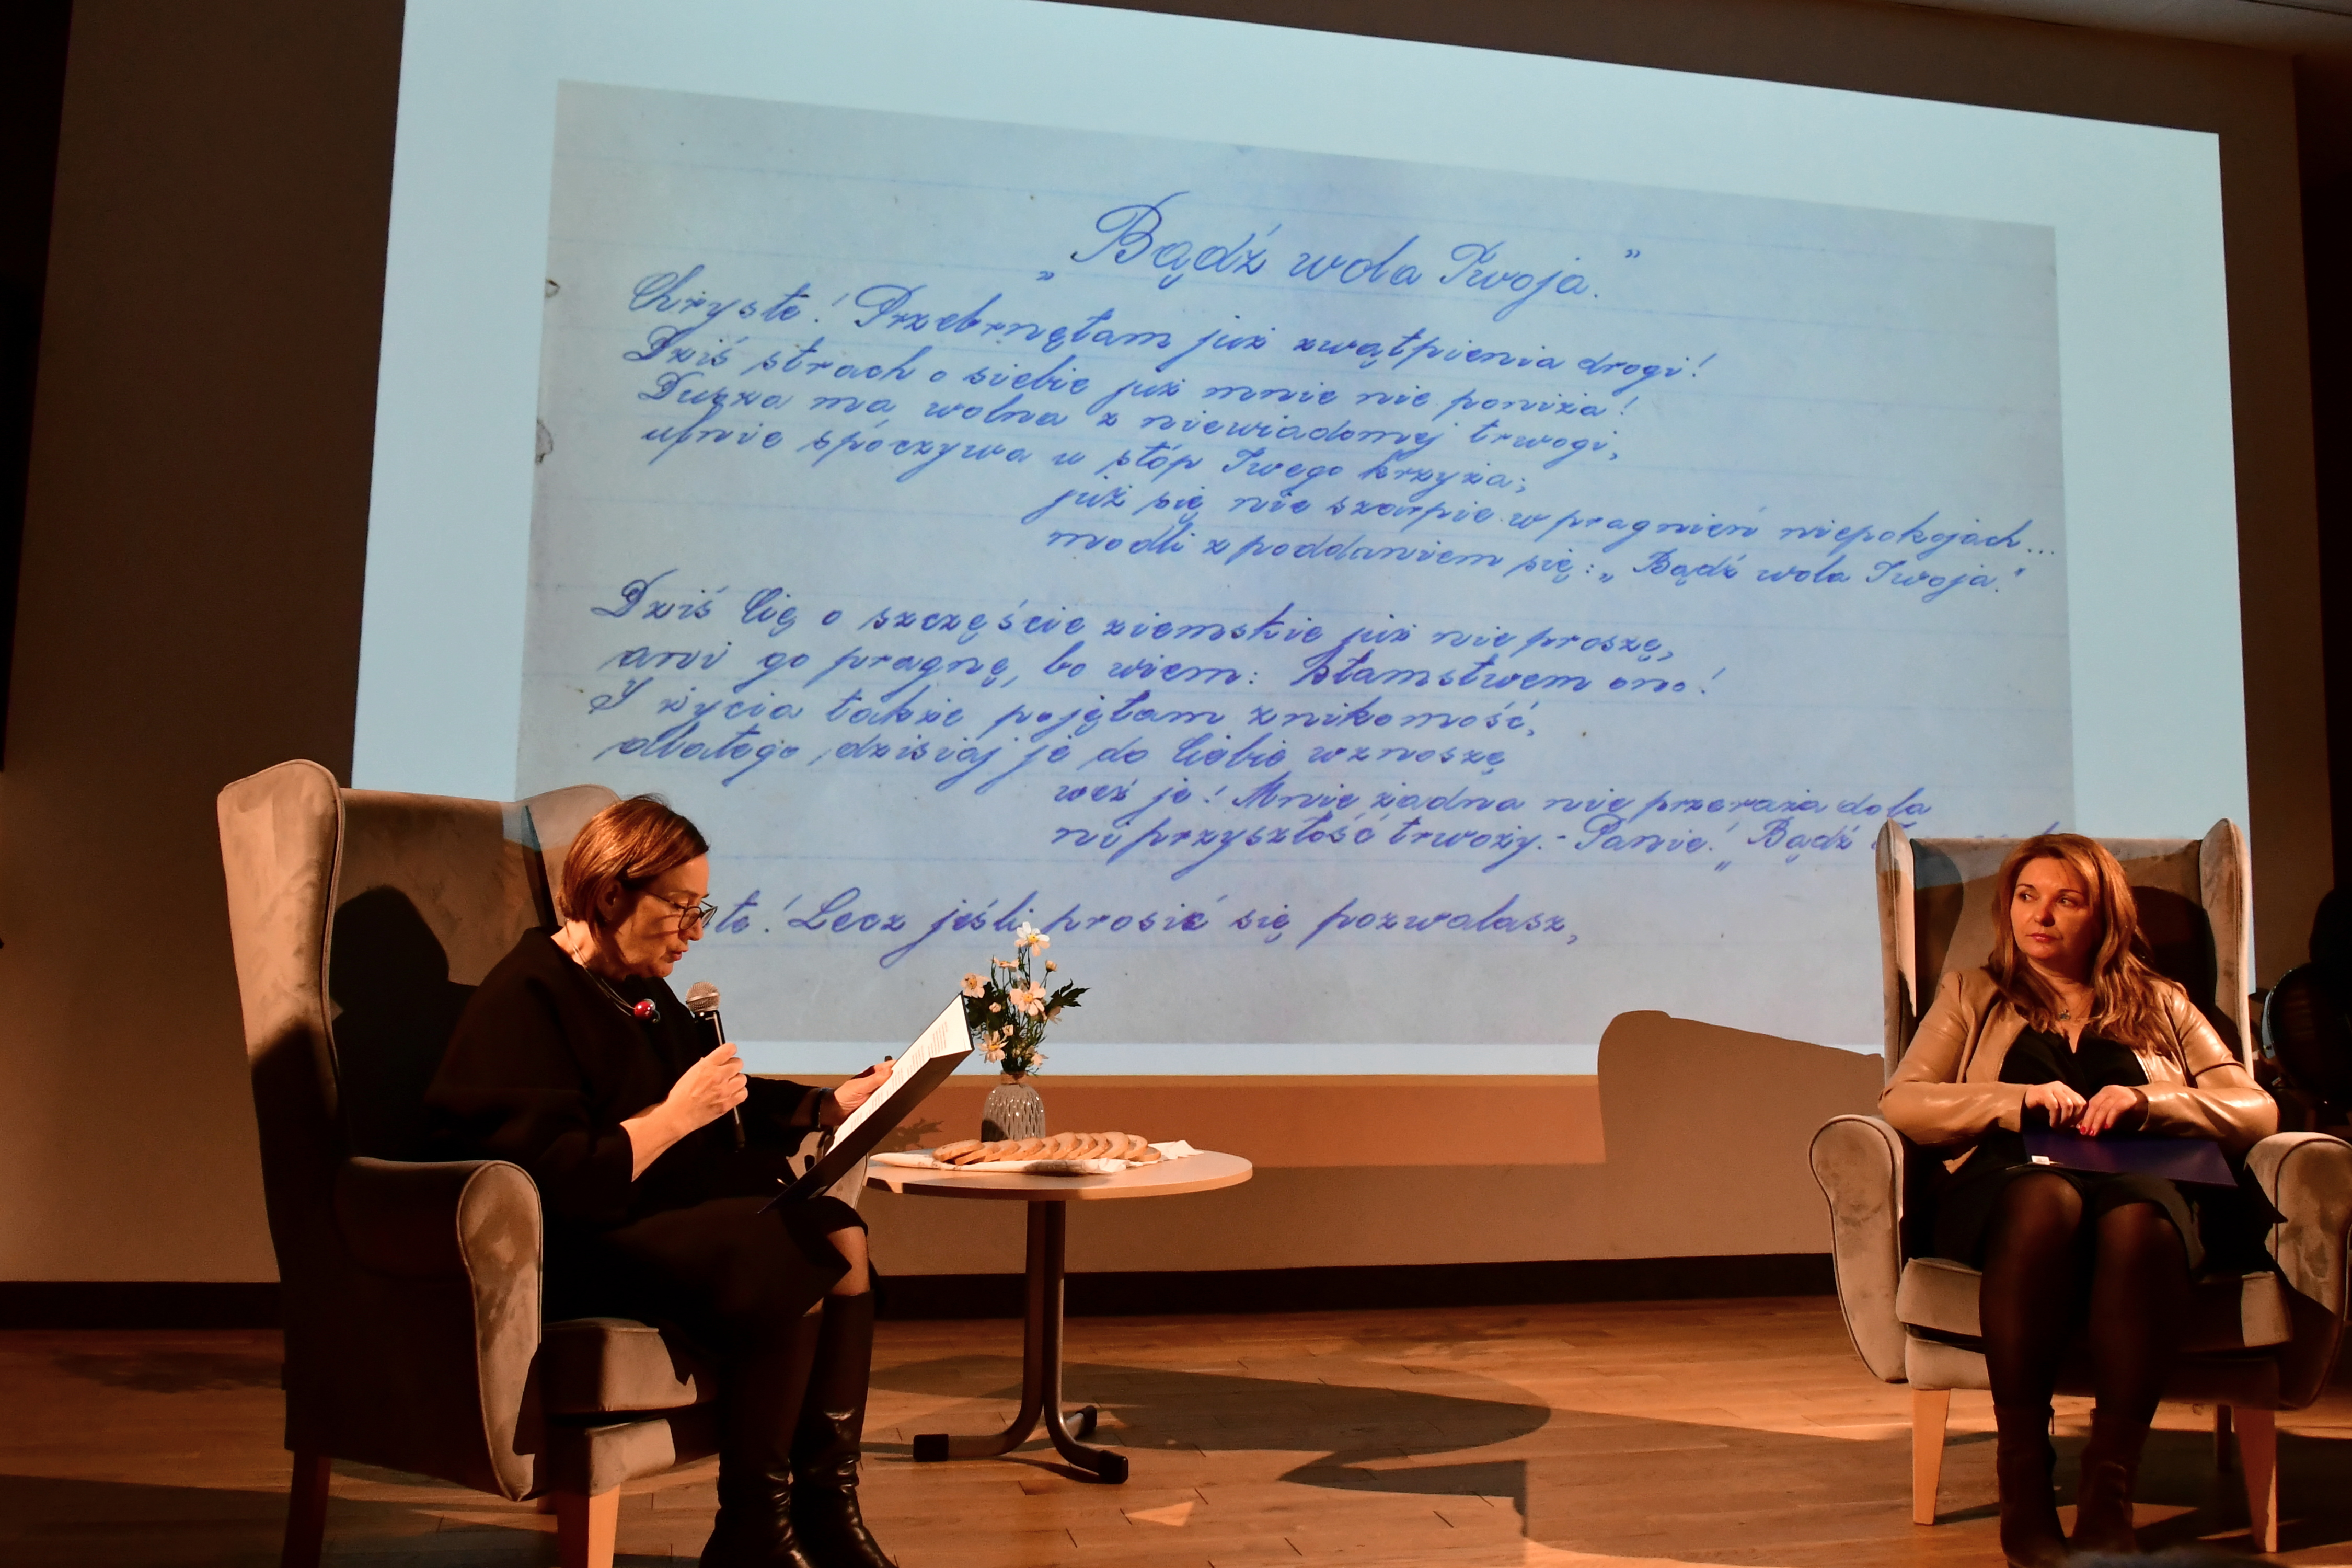 „Bądź wola Twoja.”
Chryste! Przebrnęłam już zwątpienia drogi!
Dziś strach o siebie już mnie nie poniża!
Dusza ma, wolna z niewiadomej trwogi,
ufnie spóczywa u stóp Twego krzyża;
już się nie szarpie w pragnień niepokojach...
modli z poddaniem się: „Bądź wola Twoja."
Dziś Cię o szczęście ziemskie już nie proszę,
ani go pragnę, bo wiem: kłamstwem ono!
I życia także pojęłam znikomość,
dlatego dzisiaj je do Ciebie wznoszę
weź je! Mnie żadna nie przeraża dola
ni przyszłość trwoży.- Panie! „Bądź
te! Lecz jeśli prosić się pozwalasz,